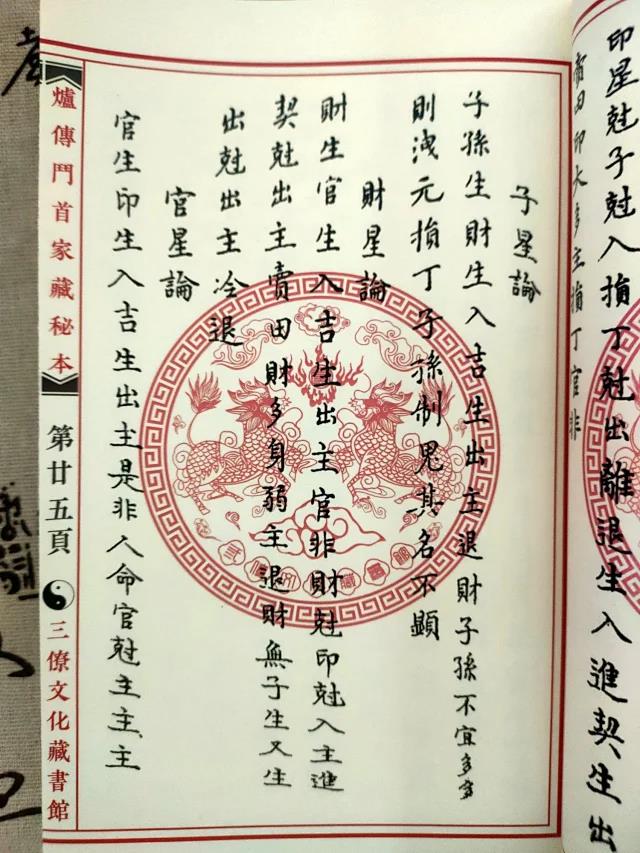 印星尅子尅入損丁尅出離退生入進契生出
賣田印太多主損丁官非
子星論
子孫生財生入吉生出主退財子孫不宜多多
則洩元損丁子孫制鬼其名不顯
財星論
財生官生入吉生出主官非財尅印尅入主進
契尅出主賣田財多身弱主退財無子生又生
出尅出主冷退
官星論
官生印生入吉生出主是非人命官尅主主主
爐傳門首家藏秘本
第廿五頁
三僚文化藏書館